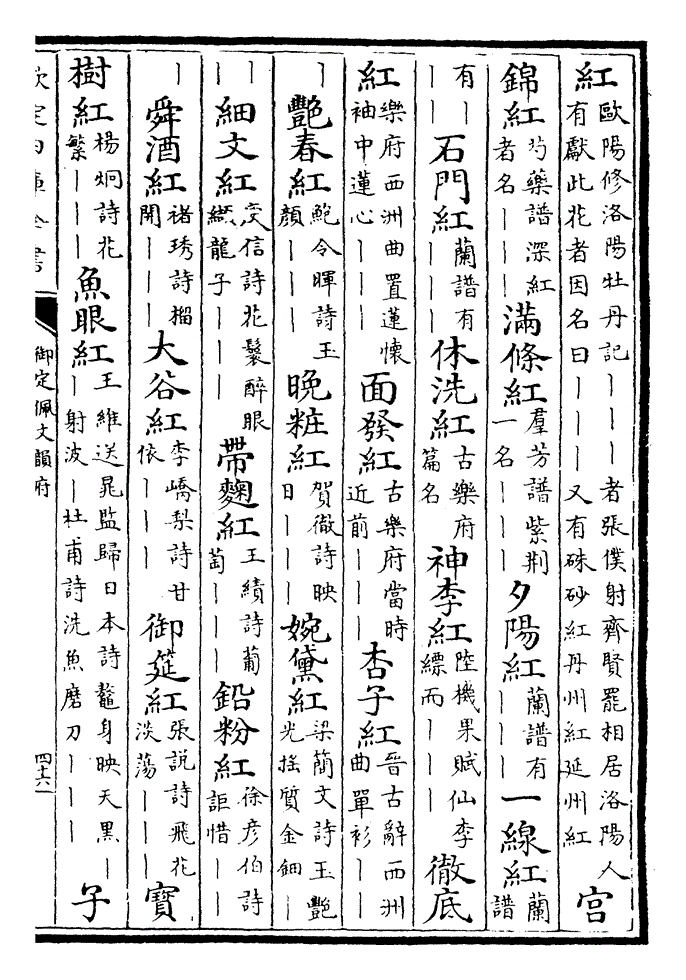 紅歐陽修洛陽牡丹記｜｜｜者張僕射齊賢罷相居洛陽人有獻此花者因名曰｜｜｜又有硃砂紅丹州紅延州紅宮
錦紅芍藥譜深紅者名｜｜｜滿條紅羣芳譜紫荆一名｜｜｜夕陽紅蘭譜有｜｜｜一線紅蘭譜
有｜｜｜石門紅蘭譜有｜｜｜休洗紅古樂府篇名神李紅陸機果賦仙李縹而｜｜｜徹底
紅樂府西洲曲置蓮懷袖中蓮心｜｜｜面發紅古樂府當時近前｜｜｜杏子紅晉古辭西洲曲單衫｜｜
｜豔春紅鮑令暉詩玉顏｜｜｜晚粧紅賀徹詩映日｜｜｜婉黛紅梁簡文詩玉豔光搖質金鈿｜
｜｜細文紅庾信詩花鬟醉眼纈龍子｜｜｜帶麴紅王績詩葡萄｜｜｜鉛粉紅徐彥伯詩詎惜｜｜
｜舜酒紅褚琇詩榴開｜｜｜大谷紅李嶠梨詩甘依｜｜｜御筵紅張説詩飛花淡蕩｜｜｜寶
樹紅楊炯詩花繁｜｜｜魚眼紅王維送晁監歸日本詩鼇身映天黑｜｜射波｜杜甫詩洗魚磨刀｜｜｜子
御定佩文韻府
四十六